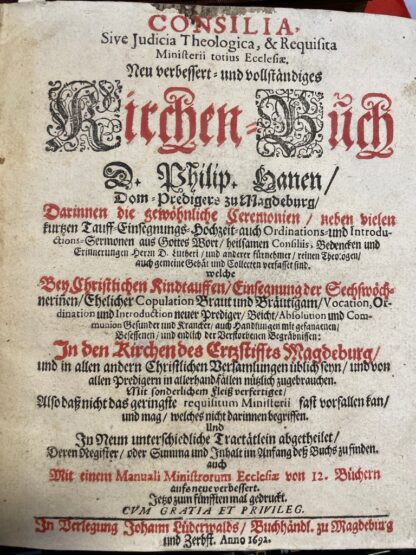 CONSILIA,
Sive Judicia Theologica, & Requisita
Ministerii totius Ecclesiæ.
Neu verbessert- und vollständiges
Kirchen-Buch
D. Philip. Hanen/
Dom-Predigers zu Magdeburg/
Darinnen die gewöhnliche Ceremonien / neben vielen
kurtzen Tauff-Einsegnungs-Hochzeit- auch Ordinations- und Introdu-
ctions-Sermonen aus Gottes Wort/ heilsamen Consiliis, Bedencken und
Erinnerungen Herrn D. Lutheri/ und anderer fürnehmer / reinen Theologen/
auch gemeine Gebät und Collecten verfasset sind.
welche
Bey Christlichen Kindtauffen/ Einsegnung der Sechswöch-
nerinen/ Ehelicher Copulation Braut und Bräutigam/ Vocation, Or-
dination und Introduction neuer Prediger/ Beicht/ Absolution und Com-
munion Gesunder und Krancker/ auch Handlungen mit gefangenen/
Besessenen / und endlich der Verstorbenen Begräbnissen:
In den Kirchen des Ertzstiffts Magdeburg/
und in allen andern Christlichen Versamlungen üblich seyn / und von
allen Predigern in allerhand Fällen nützlich zugebrauchen.
Mit sonderlichem Fleiß verfertiget/
Also daß nicht das geringste requisitum Ministerii fast vorfallen kan/
und mag / welches nicht darinnen begriffen.
Und
In Neun unterschiedliche Tractätlein abgetheilet/
Deren Register / oder Summa und Inhalt im Anfang deß Buchs zu finden.
auch
Mit einem Manuali Ministrorum Ecclesiæ von 12. Büchern
aufs neue verbessert.
Jetzo zum fünfften mal gedruckt.
CVM GRATIA ET PRIVILEG.
In Verlegung Johann Lüderwalds/ Buchhändl. zu Magdeburg
und Zerbst. Anno 1692.